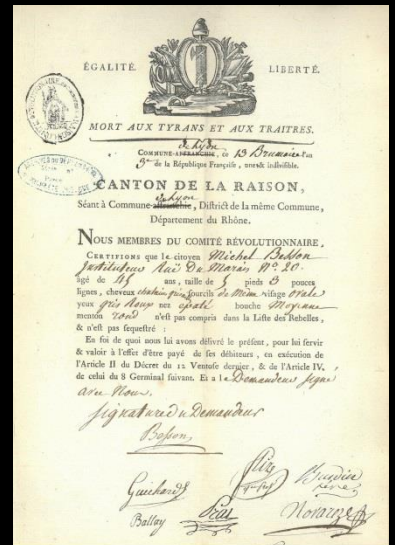 ÉGALITÉ. LIBERTÉ.
MORT AUX TYRANS ET AUX TRAITRES.
de Lyon
COMMUNE-AFFRANCHIE, ce 13 Brumaire l'an
3e de la République Française, une & indivisible.
CANTON DE LA RAISON,
de Lyon
Séant à Commune-affranchie, District de la même Commune,
Département du Rhône.
NOUS MEMBRES DU COMITÉ RÉVOLUTIONNAIRE,
CERTIFIONS que le citoyen Michel Besson
Instituteur Rue Du Marais No. 20
âgé de 45 ans, taille de 5 pieds 3 pouces
lignes, cheveux chatain gris sourcils de même visage Ovale
yeux gris Roux nez épaté bouche Moyenne
menton rond n'est pas compris dans la Liste des Rebelles,
& n'est pas sequestré :
En foi de quoi nous lui avons délivré le présent, pour lui servir
& valoir à l'effet d'être payé de ses débiteurs, en exécution de
l'Article II du Décret du 12 Ventose dernier, & de l'Article IV,
de celui du 8 Germinal suivant. Et a le Demandeur signé
avec Nous.
signature du Demandeur
Besson
Guichard
Ballay